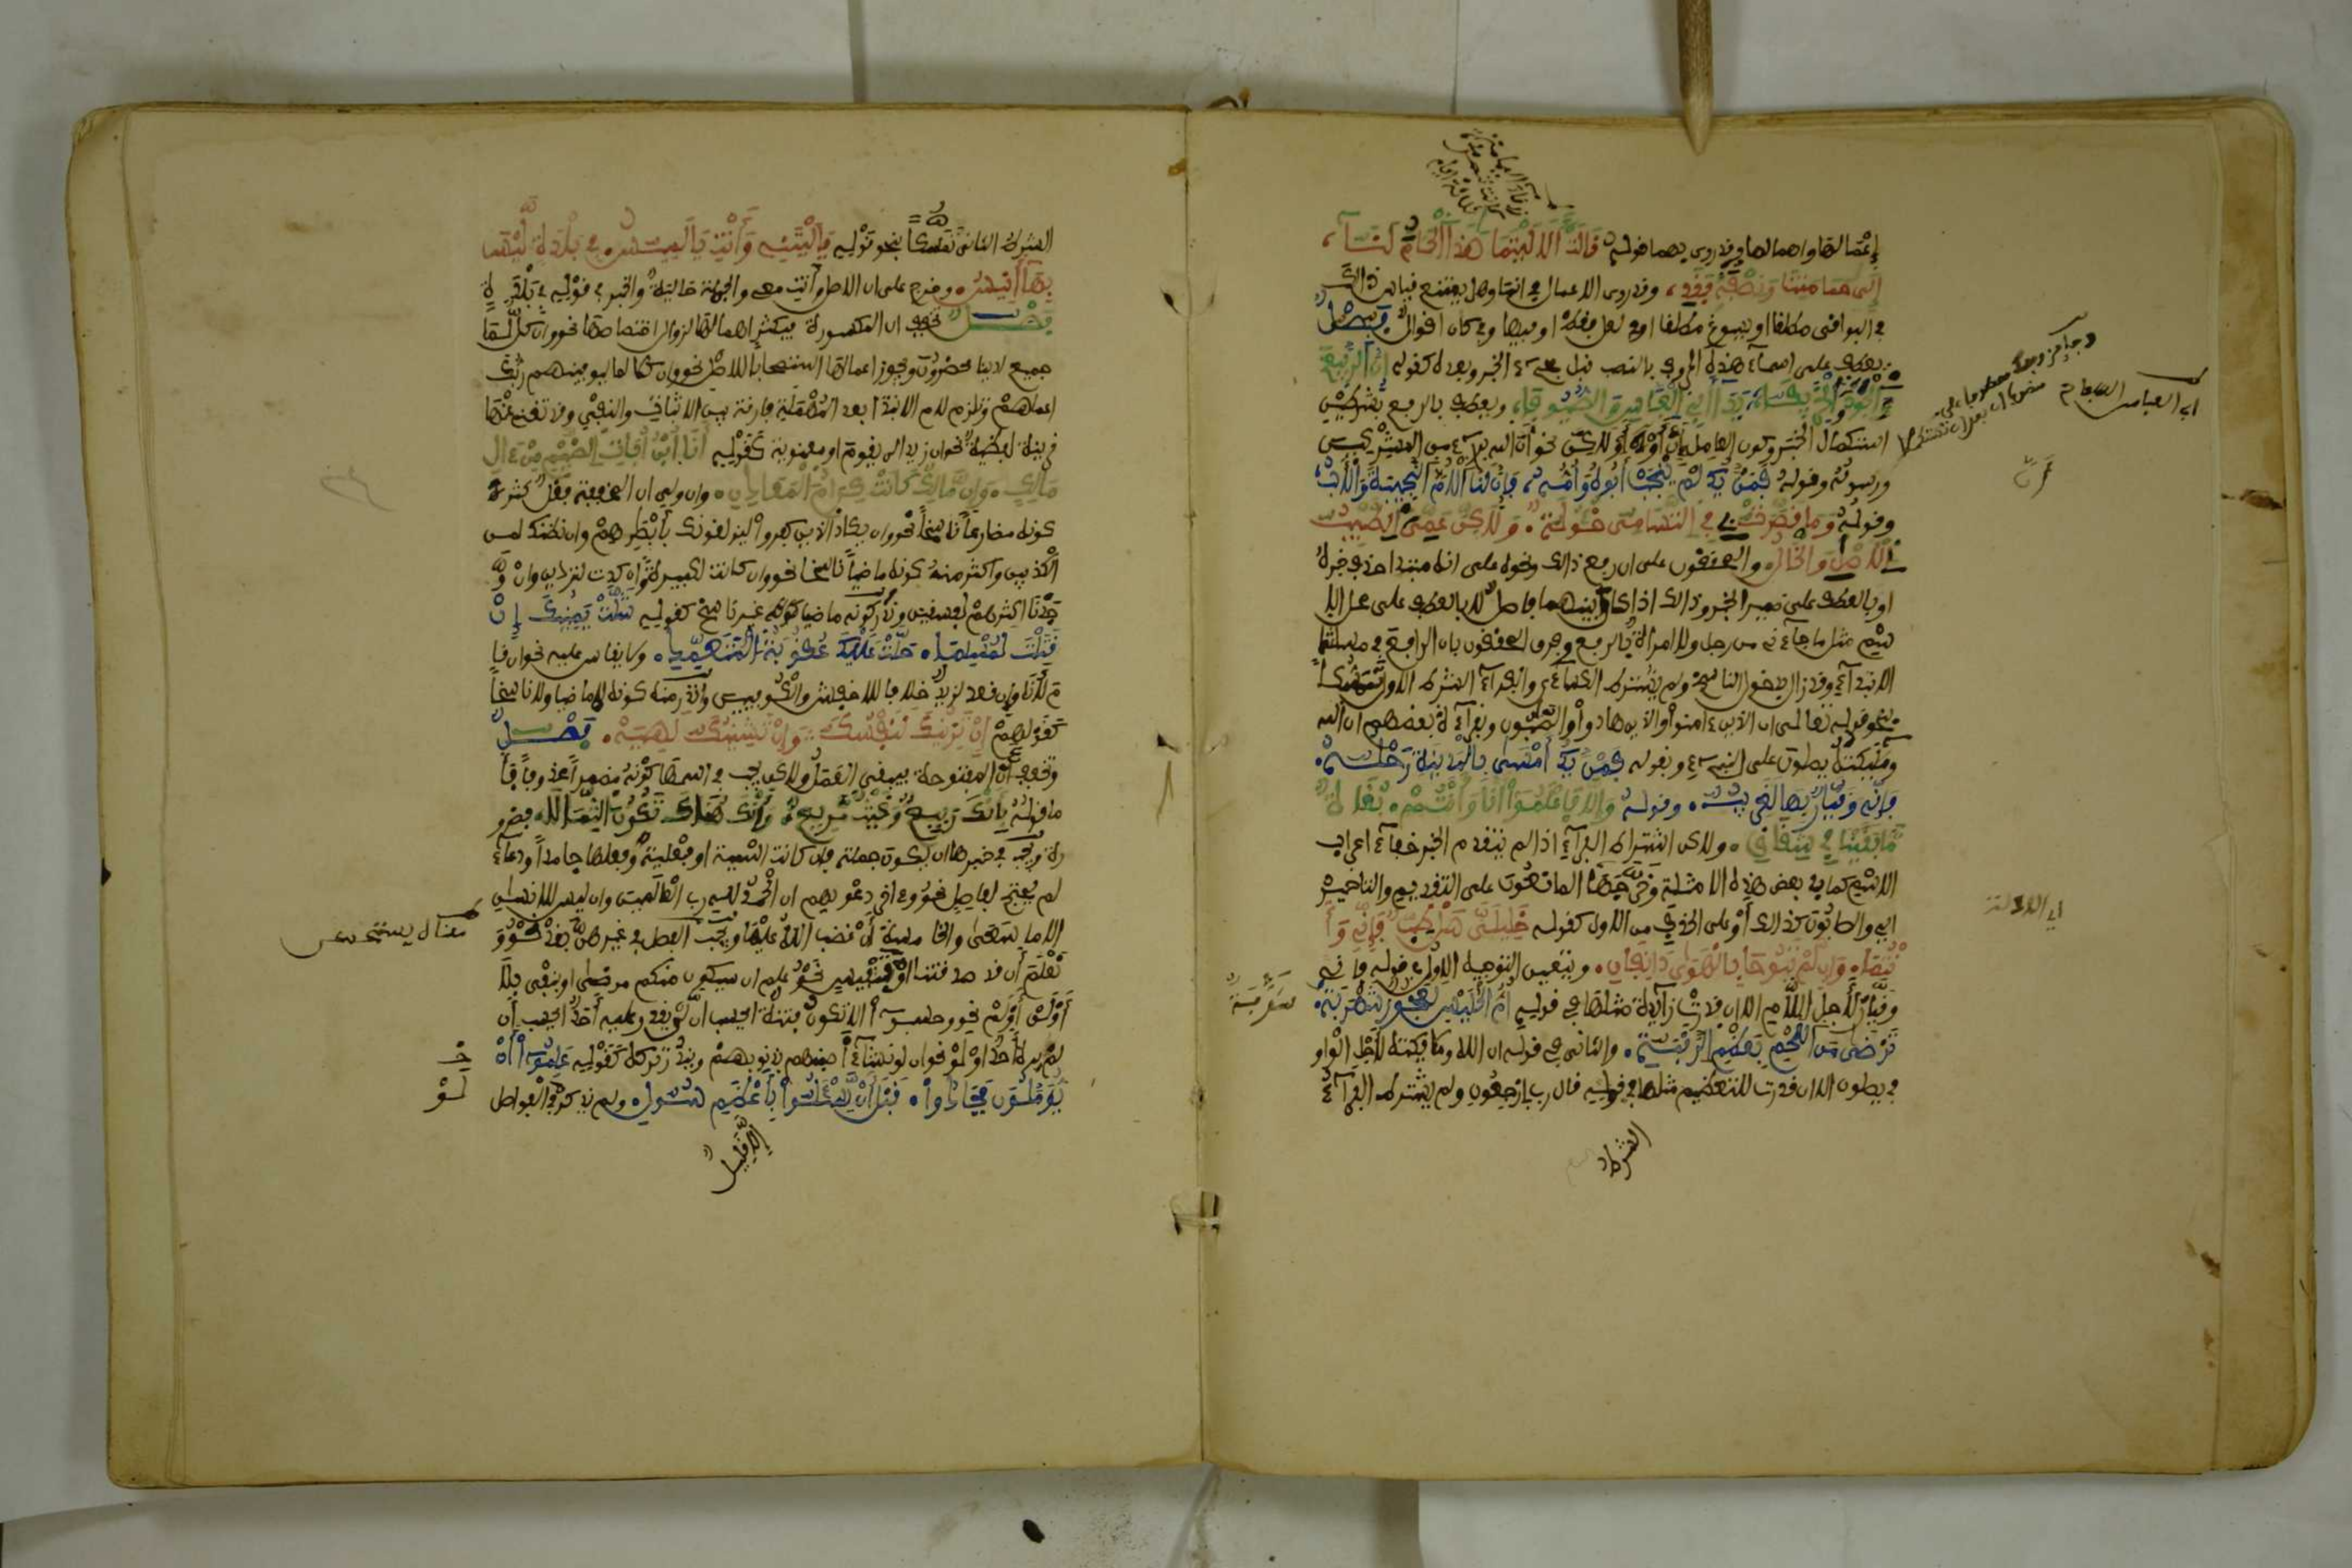 إعمالها واهمالها وقد روى بهما قوله قَالَتْ أَلَا لَيْتَمَا هَذَا الْحَمَامُ لَنَا
إِلَى حَمَامَتِنَا وَنِصْفُهُ فَقَدِ، وقد روى الاعمال في انما وهل يمتنع قياس ذلك
في البواقى مطلقا او يسوغ مطلقا او في لعل فقط او فيها وفي كان اقوال فصل
يعطف على اسماء هذه الحروف بالنصب قبل مجىء الخبر وبعده كقوله إِنَّ الرَّبِيعَ
الْجَوْدَ وَالْخَرِيفَا يَدَا أَبِي الْعَبَّاسِ وَالصُّيُوفَا، ويعطف بالرفع بشرطين
استكمال الخبر وكون العامل أَنَّ أو إِنَّ أو لكنَّ نحو أَنَّ الله برىء من المشركين
ورسوله وقوله فَمَنْ يَكُ لَمْ يُنْجِبْ أَبُوهُ وَأُمُّهُ، فَإِنَّ لَنَا الْأُمَّ النَّجِيبَةَ وَالْأَبُ
وقوله وَمَا قَصَّرَتْ بِي فِي التَّسَامِي خُؤُولَةٌ، وَلَكِنَّ عَمِّي الطَّيِّبُ
الْأَصْلِ وَالْخَالُ، والمحققون على ان رفع ذلك ونحوه على انه مبتدا حذف خبره
او بالعطف على ضمير الخبر وذلك اذا كان بينهما فاصل لا بالعطف على محل الا
سم مثل ما جاءنى من رجل ولا امراة بالرفع وفرق المحققون بان الرافع في مسئلتنا
الابتداء وقد زال بدخول الناسخ ولم يشترط الكساءى والفراء الشرط الاول تمسكا
بنحو قوله تعالى ان الذين ءامنوا والذين هادوا والصابون وبقراءة بعضهم ان الله
وملئكته يصلون على النبىء وبقوله فَمَنْ يَكُ أَمْسَى بِالْمَدِينَةِ رَحْلُهُ،
فَإِنِّي وَقَيَّارٌ بِهَا لَغَرِيبُ، وقوله وَإِلَّا فَاعْلَمُوا أَنَّا وَأَنْتُمْ، بُغَاةٌ
مَا بَقِينَا فِي شِقَاقِ، ولكن اشترط الفراء اذا لم يتقدم الخبر خفاء اعراب
الاسم كما في بعض هذه الامثلة وخرجها المانعون على التقديم والتاخير
اي والصابون كذلك أو على الحذف من الاول كقوله خَلِيلَيَّ هَلْ طِبٌّ فَإِنِّي وَأَ
نْتُمَا، وَإِنْ لَمْ تَبُوحَا بِالْهَوَى دَنِفَانِ، ويتعين التوجيه الاول في قوله فاني
وَقَيَّارٌ لأجل اللام الا ان قدرت زائدة مثلها في قوله أُمُّ الْحُلَيْسِ لَعَجُوزٌ شَهْرَبَهْ،
تَرْضَى مِنَ اللَّحْمِ بِعَظْمِ الرَّقَبَهْ، والثانى في قوله ان الله وملئكته لأجل الواو
في يصلون الا ان قدرت للتعظيم مثلها في قوله قال رب ارْجِعُونِ ولم يشترط الفراء
الشرط
ابى العباس السفاح
وجائز رفعك معطوفا على
منصوب ان بعد ان تستكملا
اى الدلالة
الشرط الثاني تمسكًا بنحو قوله يَا لَيْتَنِي وَأَنْتِ يَا لَمِيسُ، فِي بَلْدَةٍ لَيْسَ
بِهَا أَنِيسُ، وخرج على ان الاصل وأنت معى والجملة حالية والخبر في قوله في بَلْدَةٍ
فصل تخفف ان المكسورة فيكثر اهمالها لزوال اختصاصها نحو وان كل لما
جميع لدينا محضرون ويجوز اعمالها استصحابا للاصل نحو وان كلا لما ليوفينهم ربك
اعملهم وتلزم لام الابتدا بعد المهملة فارقة بين الاثبات والنفي وقد تغنى عنها
قرينة لفظية نحو ان زيد لن يقوم او معنوية كقوله أَنَا ابْنُ أُبَاةِ الضَّيْمِ مِنْ ءَالِ
مَالِكٍ، وَإِنْ مَالِكٌ كَانَتْ كِرَامَ الْمَعَادِنِ، وان ولي ان الخفيفة فعل كثر
كونه مضارعًا ناسخًا نحو وان يكاد الذين كفروا ليزلقونك بأبصارهم وان نظنك لمن
الكذبين واكثر منه كونه ماضيًا ناسخا نحو وان كانت لكبيرة وان كدت لتردين وان و
جدنا اكثرهم لفسقين وندر كونه ماضيا غير ناسخ كقوله شَلَّتْ يَمِينُكَ إِنْ
قَتَلْتَ لَمُسْلِمًا، حَلَّتْ عَلَيْكَ عُقُوبَةُ الْمُتَعَمِّدِ، ولا يقاس عليه نحو ان قا
م لأنا وان قعد لزيد خلافا للاخفش والكوفيين وأندر منه كونه لا ماضيا ولا ناسخًا
كقولهم إِنْ يَزِينُكَ لَنَفْسُكَ وَإِنْ يَشِينُكَ لَهِيَهْ، فصل
وتخفف أن المفتوحة فيبقى العمل ولكن يجب في اسمها كونه مضمرًا محذوفًا فأ
ما قوله بِأَنْكَ رَبِيعٌ وَغَيْثٌ مَرِيعٌ، وَأَنْكَ هُنَاكَ تَكُونُ الثِّمَالَا، فضرو
رة ويجب في خبرها ان يكون جملة فان كانت اسمية او فعلية وفعلها جامدًا ودعاء
لم يحتج لفاصل نحو وءاخر دعويهم ان الحمد لله رب العالمين وان ليس للانسان
الا ما سعى والخامسة أَنْ غضب الله عليها ويجب الفصل في غيرهن بقد نحو و
نعْلَمَ أن قد صدقتنا او تنفيس نحو علم ان سيكون منكم مرضى او بنفى بلا
أو لن أو لم نحو وحسبوا ألا تكون فتنة ايحسب ان لن يقدر عليه أحد ايحسب أن
لم يره أحد او لو نحو ان لو نشاء أصبنهم بذنوبهم ويندر تركه كقوله عَلِمُوا أَنْ
يُؤَمَّلُونَ فَجَادُوا، قَبْلَ أَنْ يُسْأَلُوا بِأَعْظَمِ سُؤْلِ، ولم يذكر في الفواصل
لَوْ
إلا قليل